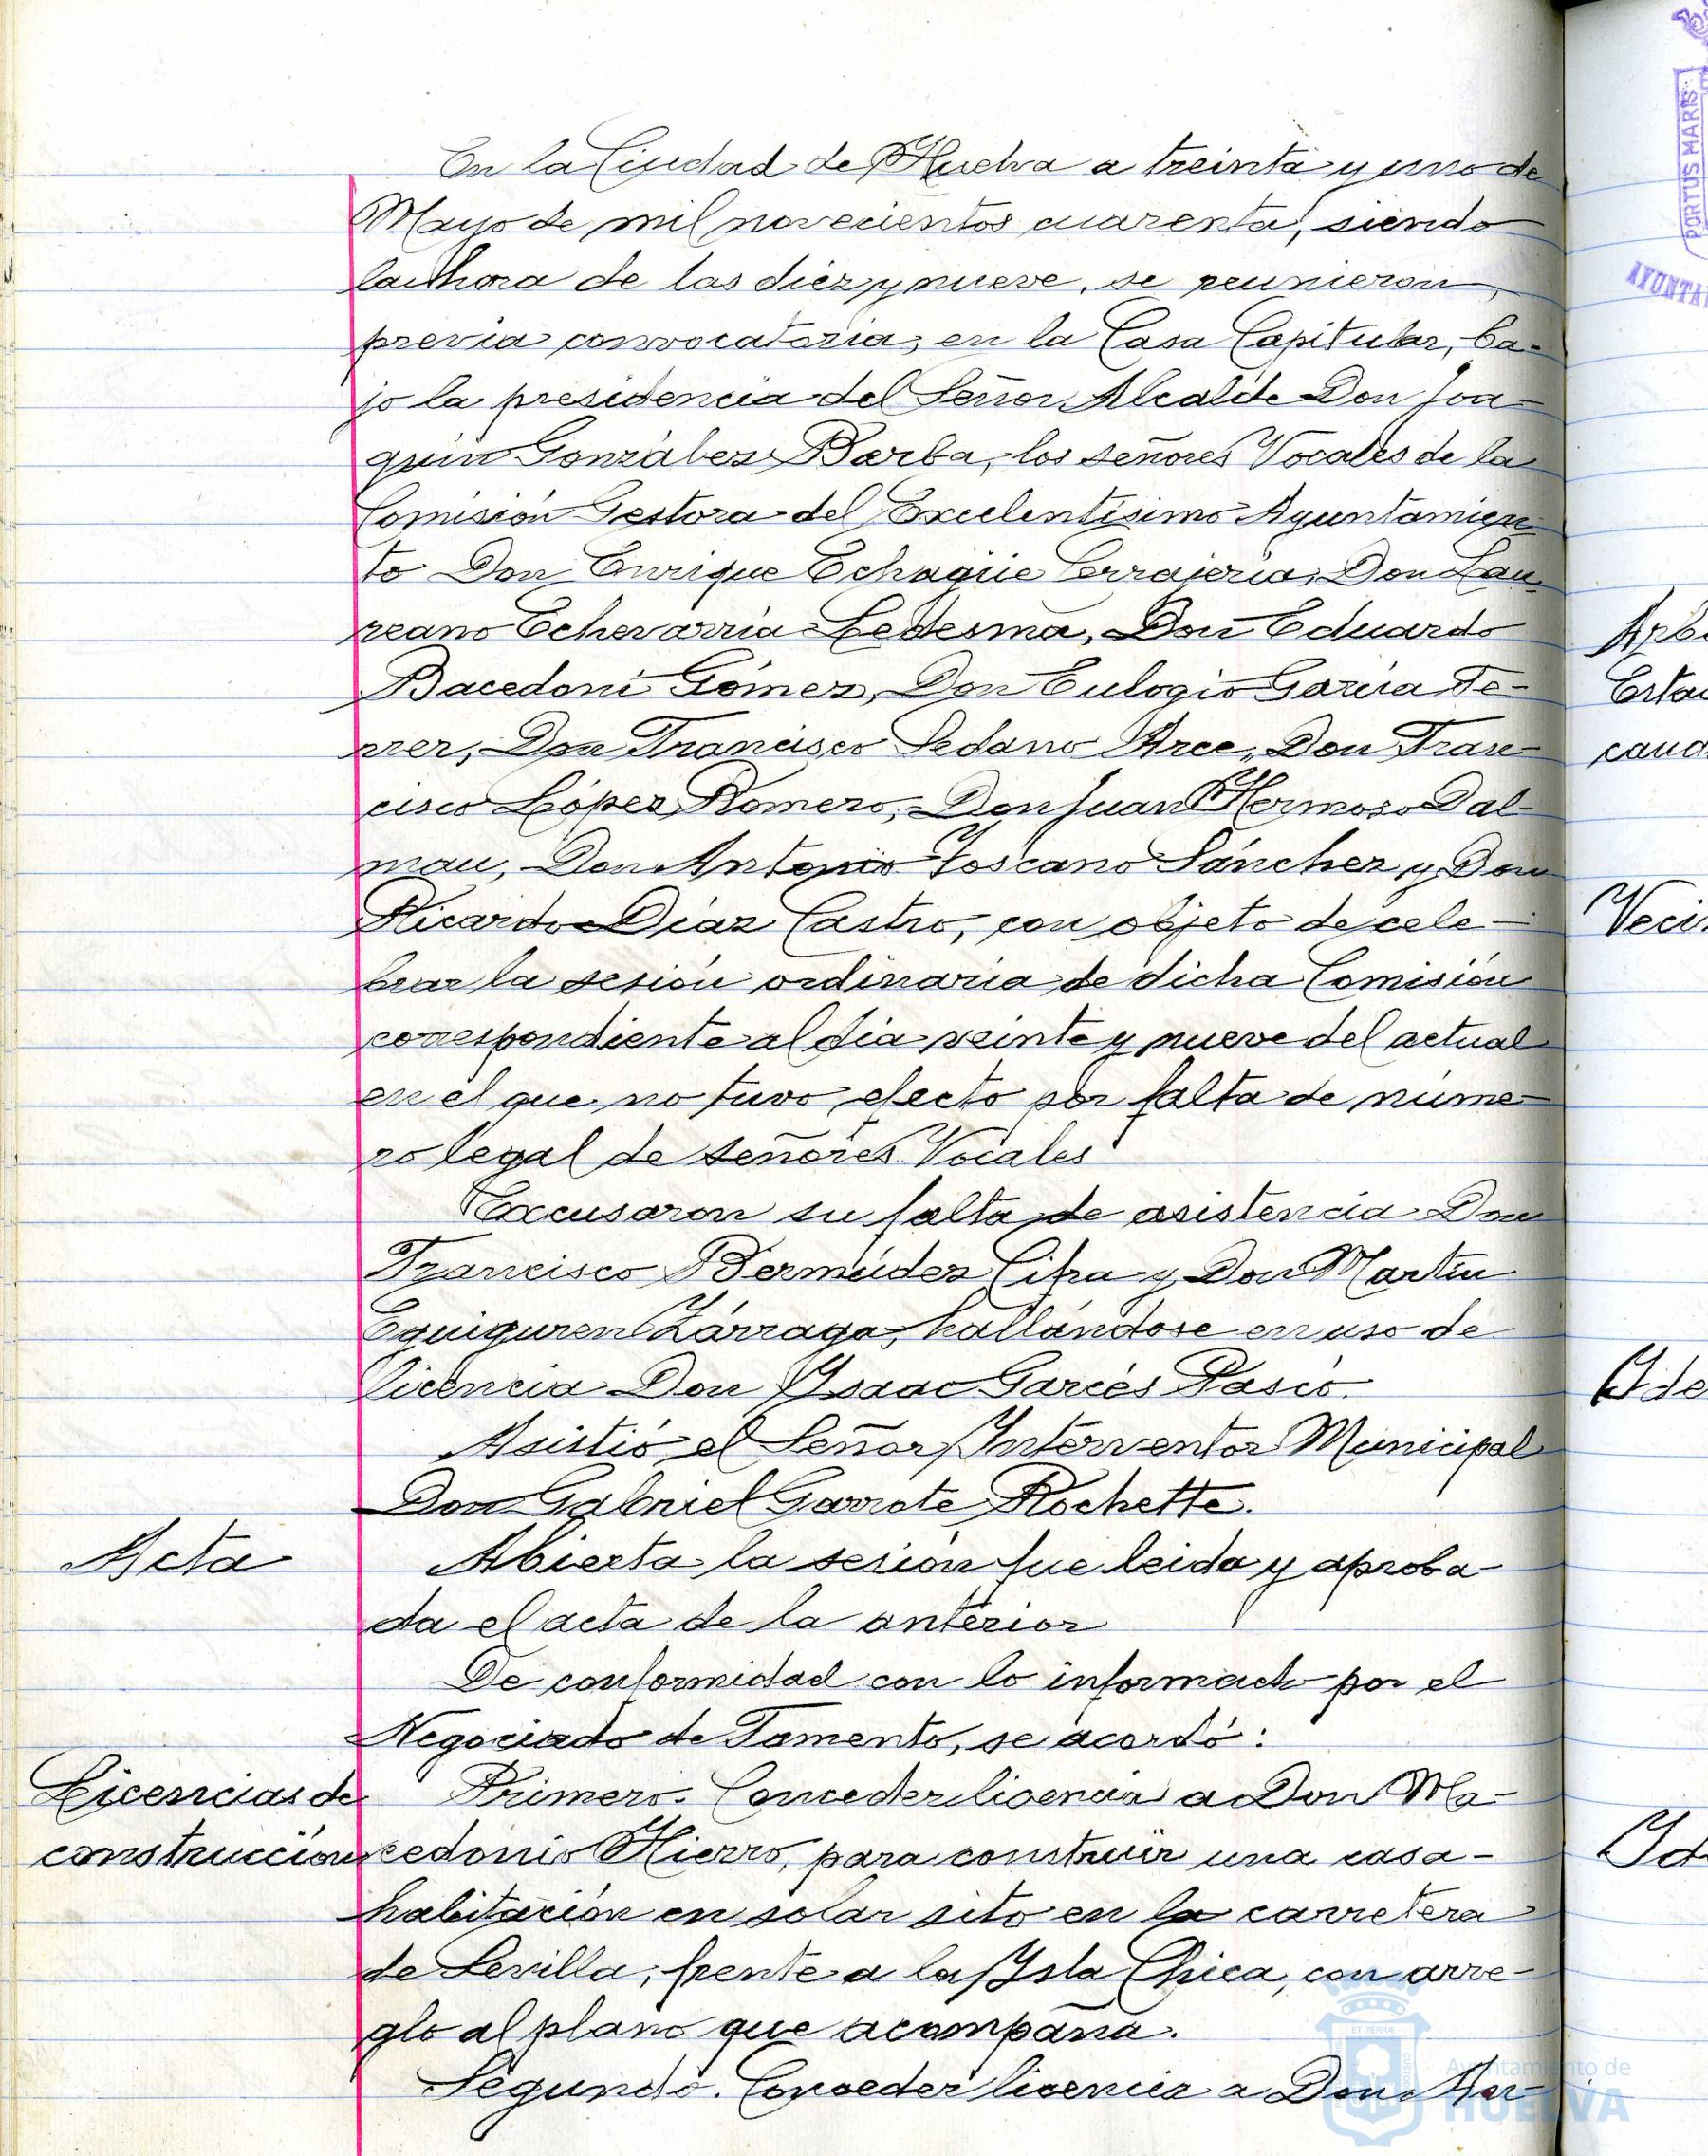 En la Ciudad de Huelva a treinta y uno de
Mayo de mil novecientos cuarenta, siendo
la hora de las diez y nueve, se reunieron,
previa convocatoria, en la Casa Capitular, ba-
jo la presidencia del Señor Alcalde Don Joa-
quín González Barba, los señores Vocales de la
Comisión Gestora del Excelentísimo Ayuntamien-
to Don Enrique Echagüe Cerrajería, Don Lau-
reano Echevarría Ledesma, Don Eduardo
Bacedoni Gómez, Don Eulogio García Fe-
rrer, Don Francisco Sedano Arce, Don Fran-
cisco López Romero, Don Juan Hermoso Dal-
mau, Don Antonio Toscano Sánchez y Don
Ricardo Díaz Castro, con objeto de cele-
brar la sesión ordinaria de dicha Comisión
correspondiente al día veinte y nueve del actual
en el que no tuvo efecto por falta de núme-
ro legal de señores Vocales
Excusaron su falta de asistencia Don
Francisco Bermúdez Cifra y Don Martín
Eguiguren Zárraga, hallándose en uso de
licencia Don Ysaac Garcés Pascó.
Asistió el Señor Ynterventor Municipal
Don Gabriel Garrote Rochette.
Acta
Abierta la sesión fue leida y aproba-
da el acta de la anterior
De conformidad con lo informado por el
Negociado de Fomento, se acordó:
Licencias de
construcción
Primero. Conceder licencia a Don Ma-
cedonio Hierro, para construir una casa-
habitación en solar sito en la carretera
de Sevilla, frente a la Ysla Chica, con arre-
glo al plano que acompaña.
Segundo. Conceder licencia a Don
PORTUS MARIS
Ayuntamiento de
HUELVA